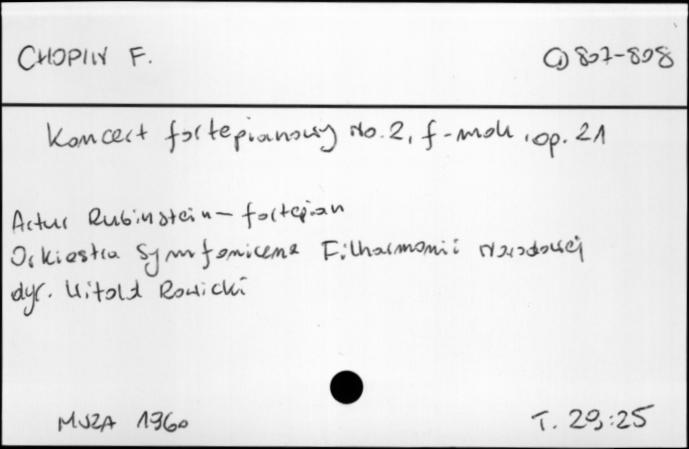 CHOPIN F.
CD 807-808
Koncert fortepianowy No. 2, f-moll, op. 21
Artur Rubinstein - fortepian
Orkiestra Symfoniczna Filharmonii Narodowej
dyr. Witold Rowicki
MUZA 1960
T. 29:25